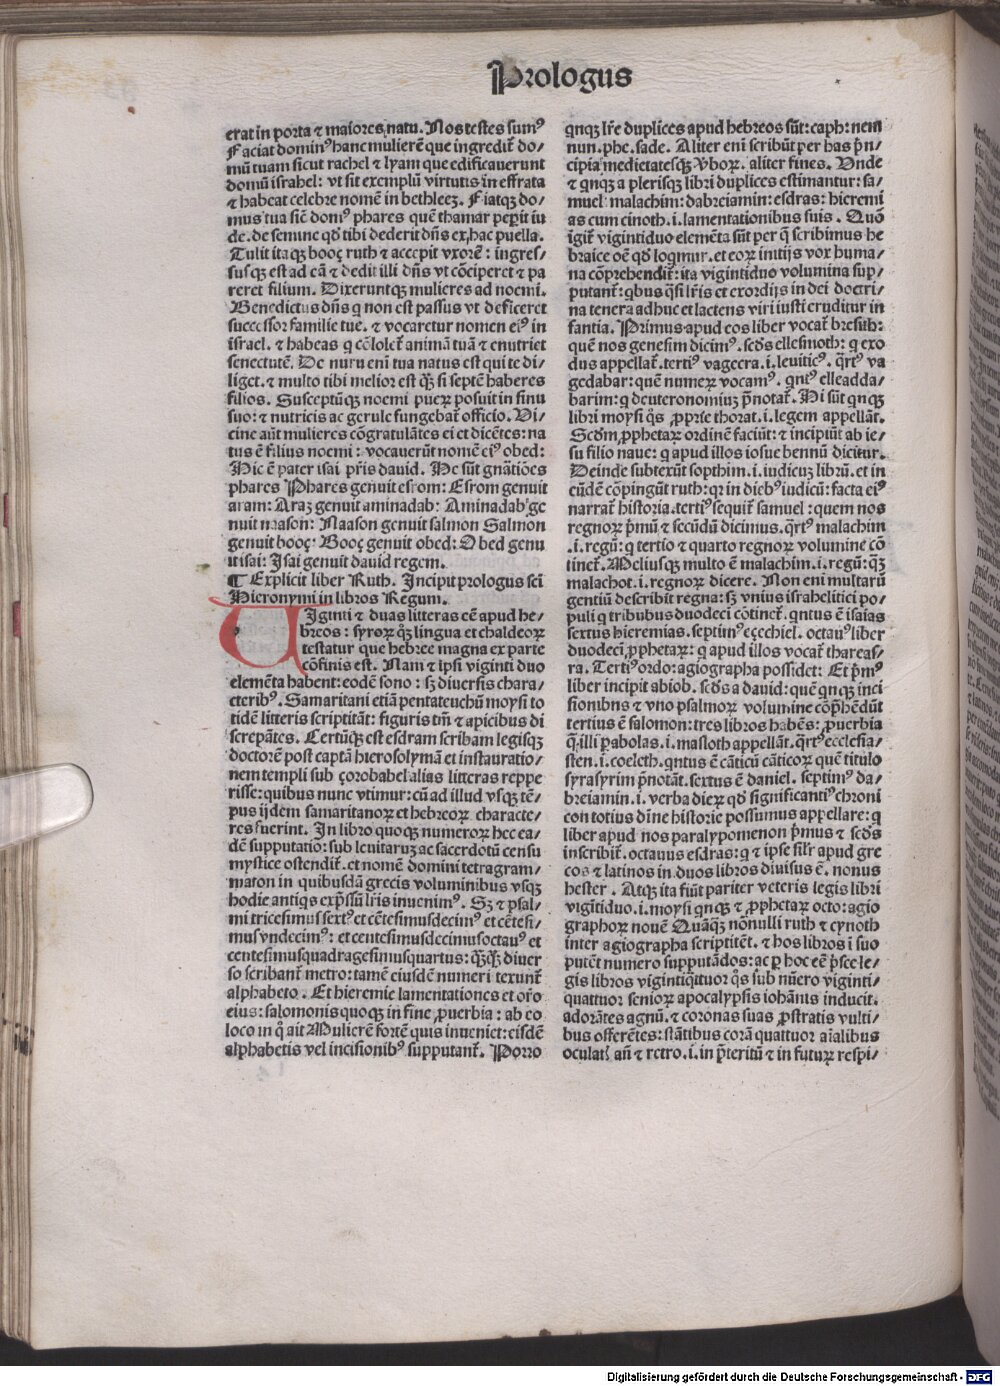 Prologus
erat in porta ⁊ maiores natu. Nos testes sumꝰ
Faciat dominꝰ hanc mulierē que ingredit̄ do/
mū tuam sicut rachel ⁊ lyam que edificauerunt
domū israhel: vt sit exemplū virtutis in effrata
⁊ habeat celebre nomē in bethleeꝫ. Fiatqꝫ do/
mus tua sic̄ domꝰ phares quē thamar peꝑit iu
de. de semine qđ tibi dederit dn̄s ex hac puella.
Tulit itaqꝫ booç ruth ⁊ accepit vxorē: ingres/
susqꝫ est ad eā ⁊ dedit illi dn̄s vt cōciperet ⁊ pa
reret filium. Dixeruntqꝫ mulieres ad noemi.
Benedictus dn̄s q non est passus vt deficeret
successor familie tue. ⁊ vocaretur nomen eiꝰ in
israel. ⁊ habeas q cōsolet̄ animā tuā ⁊ enutriet
senectutē. De nuru eni tua natus est qui te di/
liget. ⁊ multo tibi melior est q̄ꝫ si septē haberes
filios. Susceptūqꝫ noemi pueꝝ posuit in sinu
suo: ⁊ nutricis ac gerule fungebat̄ officio. Vi/
cine aūt mulieres cōgratulātes ei et dicētes: na
tus ē filius noemi: vocauerūt nomē eiꝰ obed:
Hic ē pater isai pr̄is dauid. He sūt gn̄atiōes
phares Phares genuit esrom: Esrom genuit
aram: Araꝫ genuit aminadab: Aminadab ge
nuit naason: Naason genuit salmon Salmon
genuit booç: Booç genuit obed: Obed genu
it isai: Isai genuit dauid regem.
¶ Explicit liber Ruth. Incipit prologus sci̅
Hieronymi in libros Regum.
VIginti ⁊ duas litteras eē apud he/
breos: syroꝝ qꝫ lingua et chaldeoꝝ
testatur que hebree magna ex parte
cōfinis est. Nam ⁊ ipsi viginti duo
elemēta habent: eodē sono: sꝫ diuersis chara/
cteribꝰ. Samaritani etiā pentateuchū moysi to
tidē litteris scriptitāt: figuris tm̄ ⁊ apicibus di
screpātes. Certūqꝫ est esdram scribam legisqꝫ
doctorē post captā hierosolymā et instauratio/
nem templi sub çorobabel alias litteras reppe
risse: quibus nunc vtimur: cū ad illud vsqꝫ tē/
pus ijdem samaritanoꝝ et hebreoꝝ characte/
res fuerint. In libro quoqꝫ numeroꝝ hec ea/
dē supputatio: sub leuitaruꝫ ac sacerdotū censu
mystice ostendit̄. et nomē domini tetragram/
maton in quibusdā grecis voluminibus vsqꝫ
hodie antiqs exp̄ssū lr̄is inuenimꝰ. Sꝫ ⁊ psal/
mi tricesimus sextꝰ et cētesimusdecimꝰ et cētesi/
musvndecimꝰ: et centesimusdecimusoctauꝰ et
centesimusquadragesimusquartus: q̄ꝫq̄ꝫ diuer
so scribant̄ metro: tamē eiusdē numeri texunt̄
alphabeto. Et hieremie lamentationes et or̄o
eius: salomonis quoqꝫ in fine ꝓuerbia: ab eo
loco in q̊ ait Mulierē fortē quis inueniet: eisdē
alphabetis vel incisionibꝰ supputant̄. Porro
qnqꝫ lr̄e duplices apud hebreos sūt: caph: nem
nun. phe. sade. Aliter eni scribūt per has p̄n/
cipia medietatesqꝫ ꝟboꝝ. aliter fines. Unde
⁊ qnqꝫ a plerisqꝫ libri duplices estimantur: sa/
muel: malachim: dabreiamin: esdras: hieremi
as cum cinoth. i. lamentationibus suis. Quō
igit̄ vigintiduo elemēta sūt per q̄ scribimus he
braice oē qđ loqmur. et eoꝝ initijs vox huma/
na cōprehendit̄: ita vigintiduo volumina sup/
putant̄: qbus qsi lr̄is et exordijs in dei doctri/
na tenera adhuc et lactens viri iusti eruditur in
fantia. Primus apud eos liber vocat̄ bresith:
quē nos genesim dicimꝰ. scđs ellesmoth: q exo
dus appellat̄. tertiꝰ vagecra. i. leuiticꝰ. q̄rtꝰ va
gedabar: quē numeꝝ vocamꝰ. qntꝰ elleadda/
barim: q deuteronomiuꝫ p̄notat̄. Hi sūt qnqꝫ
libri moysi qs̄ ꝓprie thorat. i. legem appellāt.
Scđm ꝓphetaꝝ ordinē faciūt: ⁊ incipiūt ab ie/
su filio naue: q apud illos iosue bennū dicitur.
Deinde subtexūt sopthim. i. iudicuꝫ librū. et in
eūdē cōpingūt ruth: qꝛ in diebꝰ iudicū: facta eiꝰ
narrat̄ historia. tertiꝰ sequit̄ samuel: quem nos
regnoꝝ p̄mū ⁊ secūdū dicimus. q̄rtꝰ malachim
. i. regū: q tertio ⁊ quarto regnoꝝ volumine cō
tinet̄. Meliusqꝫ multo ē malachim. i. regū: q̄ꝫ
malachot. i. regnoꝝ dicere. Non eni multarū
gentiū describit regna: sꝫ vnius israhelitici po/
puli q tribubus duodeci cōtinet̄. qntus ē isaias
sextus hieremias. septimꝰ eçechiel. octauꝰ liber
duodeci ꝓphetaꝝ: q apud illos vocat̄ thareas/
ra. Tertiꝰ ordo: agiographa possidet: Et p̄mꝰ
liber incipit ab iob. scđs a dauid: quē qnqꝫ inci
sionibus ⁊ vno psalmoꝝ volumine cōp̄hēdūt
tertius ē salomon: tres libros habēs: ꝓuerbia
q̄ illi ꝑabolas. i. masloth appellāt. q̄rtꝰ ecclesia/
sten. i. coeleth. qntus ē cāticū cāticoꝝ quē titulo
syrasyrim p̄notāt. sextus ē daniel. septimꝰ da/
breiamin. i. verba dieꝝ qđ significantiꝰ chroni
con totius diuine historie possumus appellare: q
liber apud nos paralypomenon p̄mus ⁊ scđs
inscribit̄. octauus esdras: q ⁊ ipse silr̄ apud gre
cos ⁊ latinos in duos libros diuisus ē. nonus
hester. Atqꝫ ita fiūt pariter veteris legis libri
vigītiduo. i. moysi qnqꝫ ⁊ ꝓphetaꝝ octo: agio
graphoꝝ nouē Quāqꝫ nōnulli ruth ⁊ cynoth
inter agiographa scriptitēt. ⁊ hos libros i suo
putēt numero supputādos: ac ꝑ hoc eē p̄sce le/
gis libros vigintiq̄ttuor qs̄ sub nūero viginti/
quattuor senioꝝ apocalypsis iohānis inducit.
adorātes agnū. ⁊ coronas suas ꝓstratis vulti/
bus offerētes: stātibus corā quattuor aīalibus
oculatꝭ añ ⁊ retro. i. in p̄teritū ⁊ in futuꝝ respi/
Digitalisierung gefördert durch die Deutsche Forschungsgemeinschaft - DFG